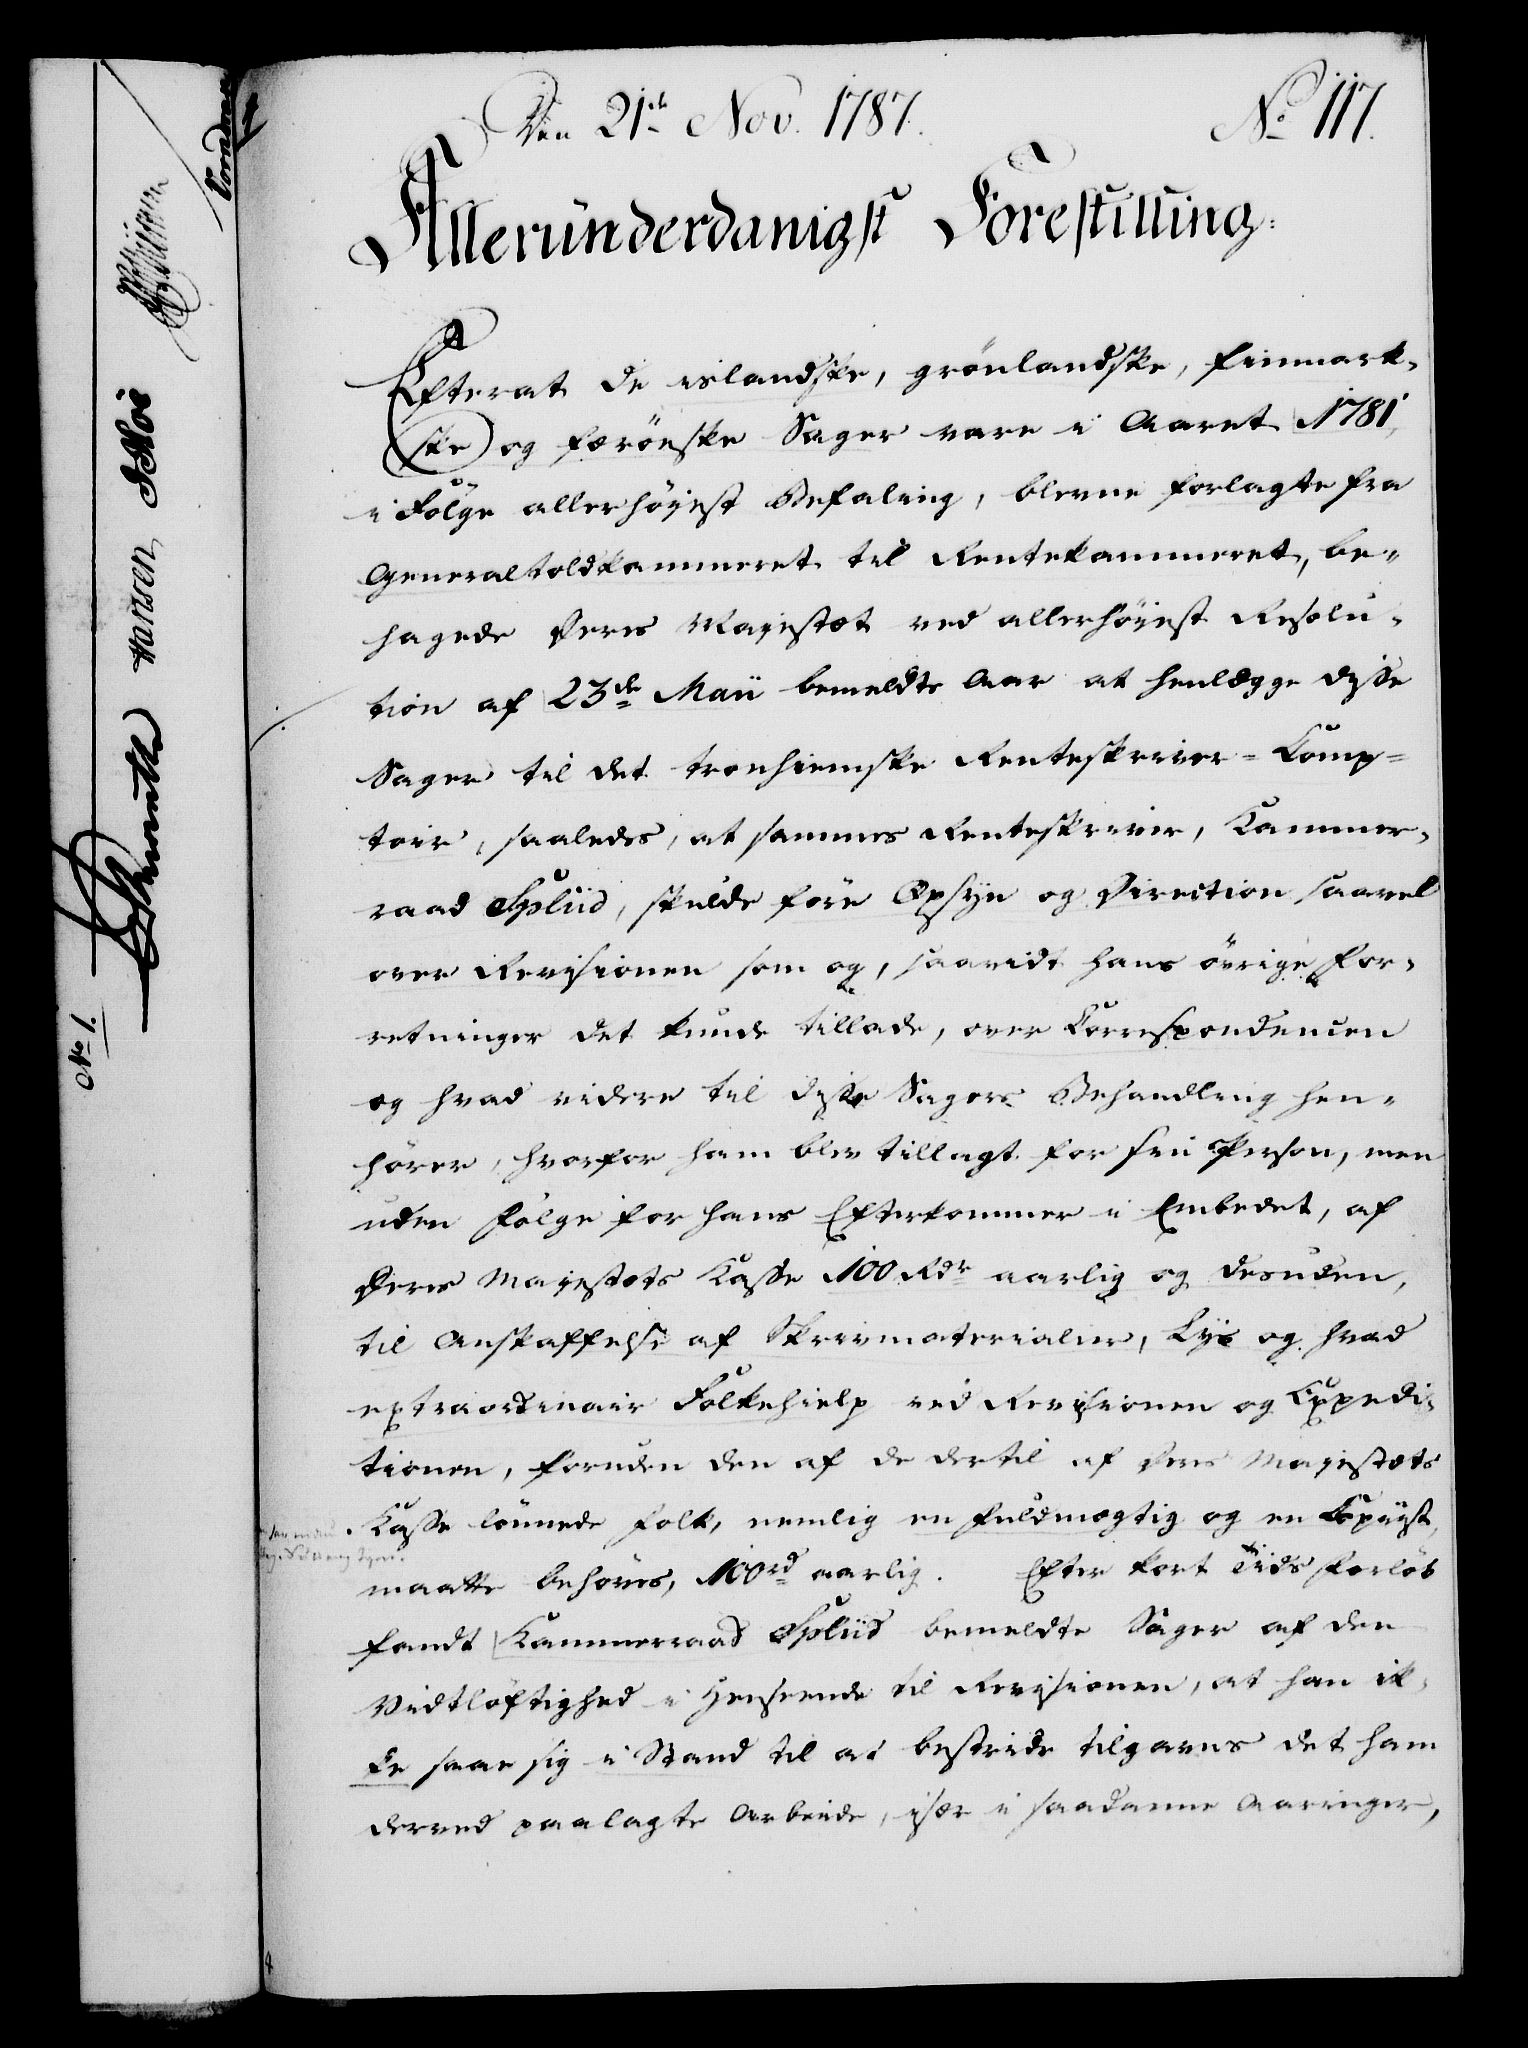 Den 21de Nov. 1787. No 117.
Allerunderdanigst Forestilling.
Efterat de islandske, grønlandske, finmark-
ske og færøeske Sager vare i Aaret 1781,
i Følge allerhøyest Befaling, blevne forlagte fra
Generaltoldkammeret til Rentekammeret, be-
hagede Deres Majestæt ved allerhøyest Resolu-
tion af 23de Maii bemeldte Aar at henlægge disse
Sager til det tronhiemske Renteskriver-Comp-
toir, saaledes, at sammes Renteskriver, Kammer-
raad Spliid, skulde føre Opsyn og Direction saavel
over Revisionen som og, saavidt hans øvrige For-
retninger det kunde tillade, over Correspondencen
og hvad videre til disse Sagers Behandling hen-
hører, hvorfor ham blev tillagt for sin Person, men
uden Følge for hans Efterkommer i Embedet, af
Deres Majestæts Kasse 100 Rdr aarlig og desuden,
til Anskaffelse af Skrivmaterialier, Lys og hvad
extraordinair Folkehielp ved Revisionen og Expedi-
tionen, foruden den af de dertil af Deres Majestæts
Kasse lønnede Folk, nemlig en Fuldmægtig og en Copiist,
maatte behøves, 100rd aarlig. Efter kort Tids Forløb
fandt Kammerraad Spliid bemeldte Sager af den
Vidtløftighed i Henseende til Revisionen, at han ik-
ke saae sig i Stand til at bestride tilgavns det ham
derved paalagte Arbeide, især i saadanne Aaringer,
No 1.
Hansen